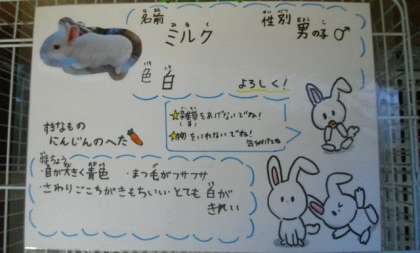 名前 ミルク
性別 男の子♂
色 白
よろしく!
☆雑草をあげないでね!
☆物をいれないでね!
すきなもの
にんじんのへた
・目が大きく青色 ・まつ毛がフサフサ
・さわりごこちがきもちいい・とても白が
きれい